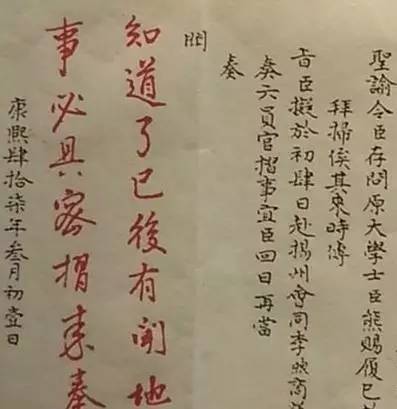 聖諭令臣存問原大學士臣熊賜履已
拜掃俟其來時傳
旨臣擬於初肆日赴揚州會同李煦商
奏六員官摺事宜臣回日再當
奏
聞
知道了已後有聞地
事必具密摺來奏
康熙肆拾柒年叁月初壹日